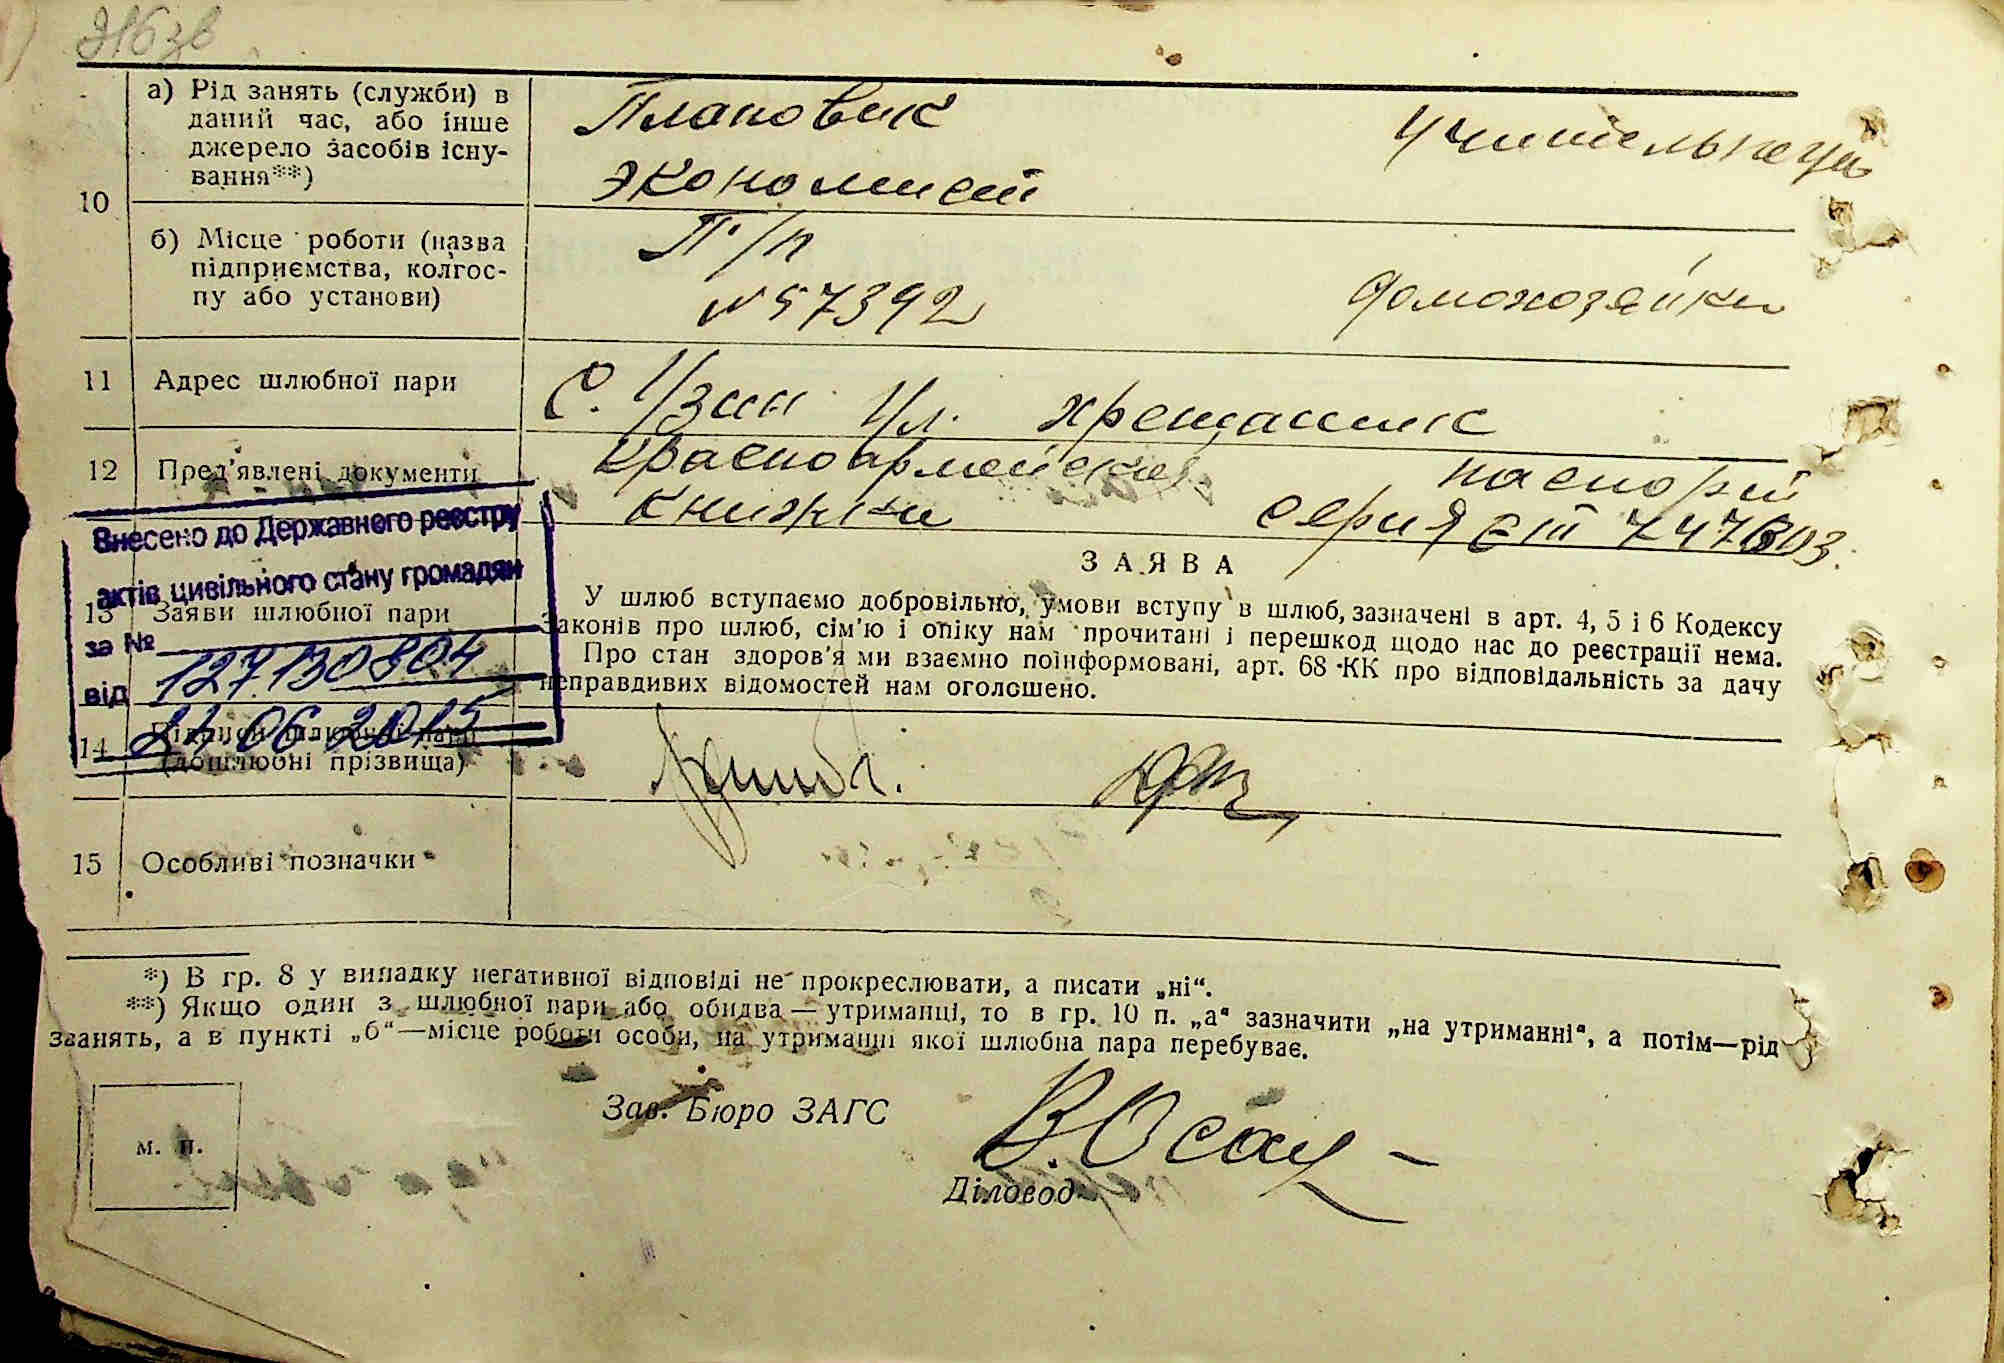 10
а) Рід занять (служби) в
даний час, або інше
джерело засобів існу-
вання**)
Плановик
экономист
Учительница
б) Місце роботи (назва
підприємства, колгос-
пу або установи)
П/п
№57392
домохозяйки
11 Адрес шлюбної пари
С. Узин Ул. Хрещатик
12 Пред'явлені документи
Красноармейская
книжка
паспорт
серия ЄШ 747603.
Внесено до Державного реєстру
актів цивільного стану громадян
за №
127130804
від
24 06 2015
13 Заяви шлюбної пари
ЗАЯВА
У шлюб вступаємо добровільно, умови вступу в шлюб, зазначені в арт. 4, 5 і 6 Кодексу
Законів про шлюб, сім'ю і опіку нам прочитані і перешкод щодо нас до реєстрації нема.
Про стан здоров'я ми взаємно поінформовані, арт. 68 КК про відповідальність за дачу
неправдивих відомостей нам оголошено.
14 Підписи шлюбної пари
(дошлюбні прізвища)
15 Особливі позначки
*) В гр. 8 у випадку негативної відповіді не прокреслювати, а писати „ні“.
**) Якщо один з шлюбної пари або обидва — утриманці, то в гр. 10 п. „а“ зазначити „на утриманні“, а потім—рід
званять, а в пункті „б“—місце роботи особи, на утриманні якої шлюбна пара перебуває.
м. п.
Зав. Бюро ЗАГС
Діловод